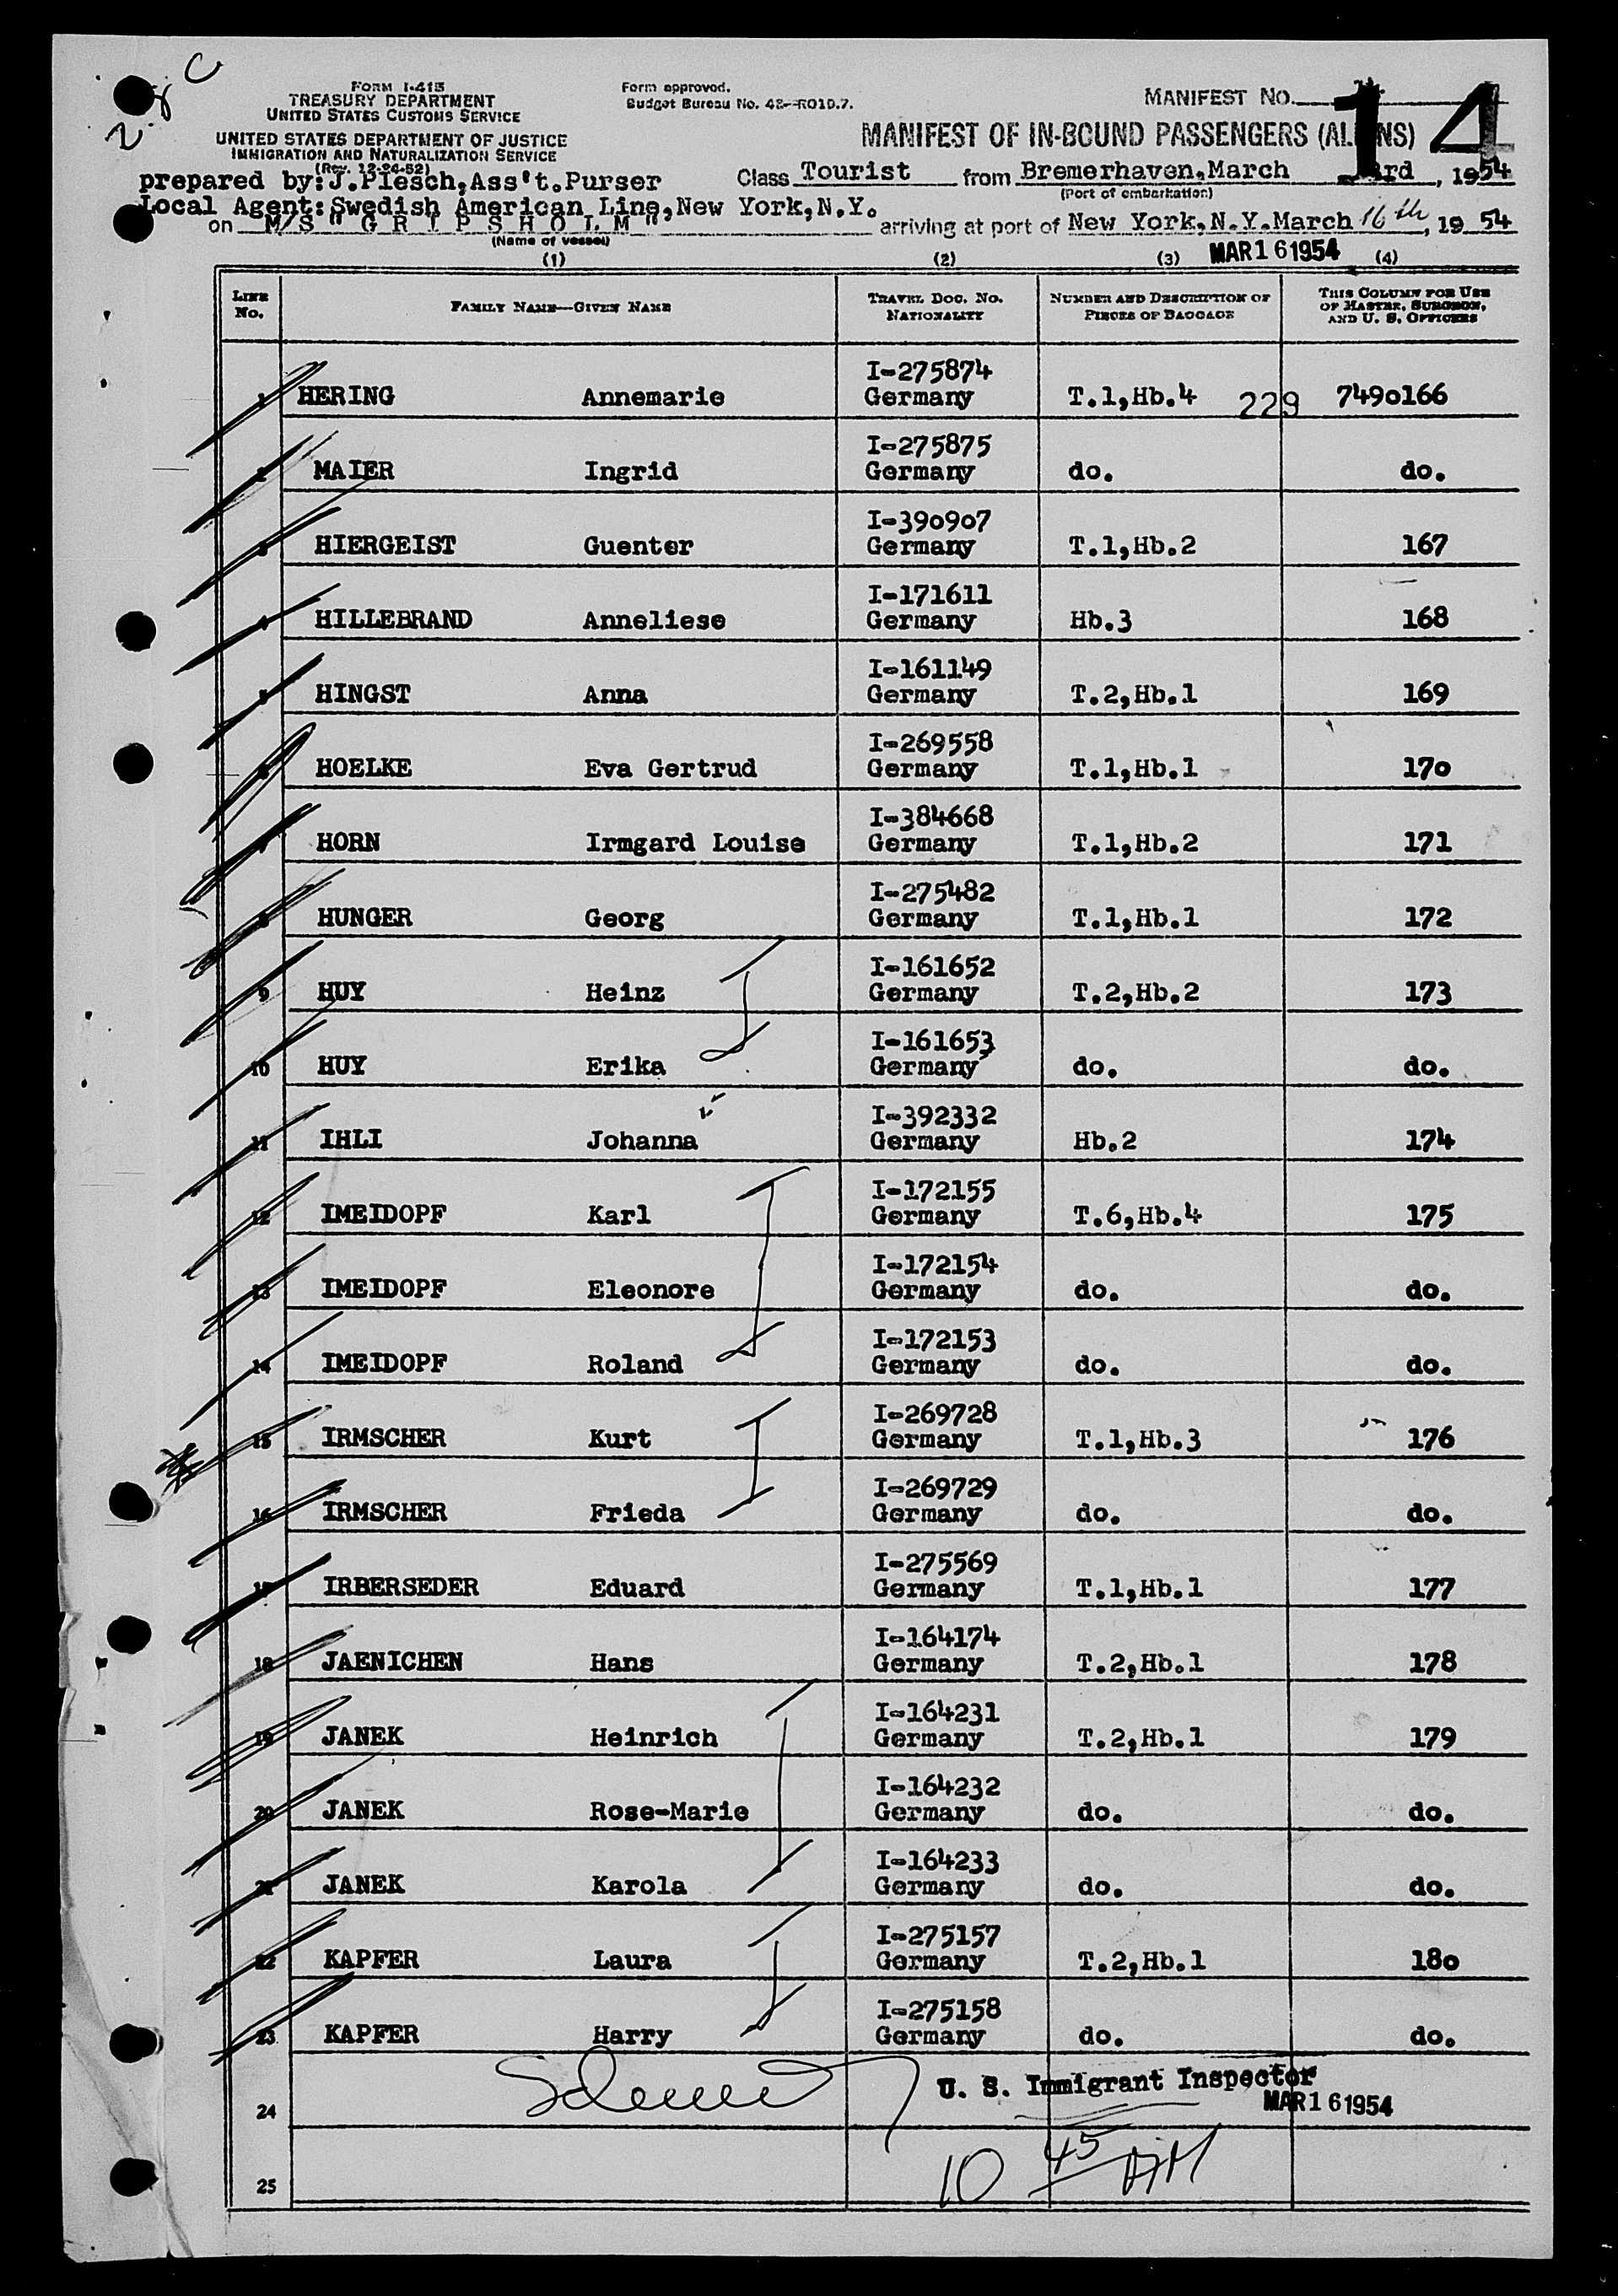 FORM I-415
TREASURY DEPARTMENT
UNITED STATES CUSTOMS SERVICE
UNITED STATES DEPARTMENT OF JUSTICE
IMMIGRATION AND NATURALIZATION SERVICE
(Rev. 12-24-52)
Form approved.
Budget Bureau No. 43-RO19.7.
MANIFEST NO. 14
MANIFEST OF IN-BOUND PASSENGERS (ALIENS)
prepared by: J.Plesch,Ass't.Purser
Class Tourist from Bremerhaven,March 3rd, 1954
(Port of embarkation)
Local Agent: Swedish American Line,New York,N.Y.
on M/S " G R I P S H O L M " arriving at port of New York,N.Y.March 16th, 1954
(Name of vessel)
MAR 16 1954
(1) (2) (3) (4)
LINE NO. FAMILY NAME—GIVEN NAME TRAVEL DOC. NO. NATIONALITY NUMBER AND DESCRIPTION OF PIECES OF BAGGAGE THIS COLUMN FOR USE OF MASTER, SURGEON, AND U. S. OFFICERS
I-275874
1 HERING Annemarie Germany T.1,Hb.4 229 7490166
I-275875
2 MAIER Ingrid Germany do. do.
I-390907
3 HIERGEIST Guenter Germany T.1,Hb.2 167
I-171611
4 HILLEBRAND Anneliese Germany Hb.3 168
I-161149
5 HINGST Anna Germany T.2,Hb.1 169
I-269558
6 HOELKE Eva Gertrud Germany T.1,Hb.1 170
I-384668
7 HORN Irmgard Louise Germany T.1,Hb.2 171
I-275482
8 HUNGER Georg Germany T.1,Hb.1 172
I-161652
9 HUY Heinz Germany T.2,Hb.2 173
I-161653
10 HUY Erika Germany do. do.
I-392332
11 IHLI Johanna Germany Hb.2 174
I-172155
12 IMEIDOPF Karl Germany T.6,Hb.4 175
I-172154
13 IMEIDOPF Eleonore Germany do. do.
I-172153
14 IMEIDOPF Roland Germany do. do.
I-269728
15 IRMSCHER Kurt Germany T.1,Hb.3 176
I-269729
16 IRMSCHER Frieda Germany do. do.
I-275569
17 IRBERSEDER Eduard Germany T.1,Hb.1 177
I-164174
18 JAENICHEN Hans Germany T.2,Hb.1 178
I-164231
19 JANEK Heinrich Germany T.2,Hb.1 179
I-164232
20 JANEK Rose-Marie Germany do. do.
I-164233
21 JANEK Karola Germany do. do.
I-275157
22 KAPFER Laura Germany T.2,Hb.1 180
I-275158
23 KAPFER Harry Germany do. do.
U. S. Immigrant Inspector
MAR 16 1954
24
10 45 AM
25